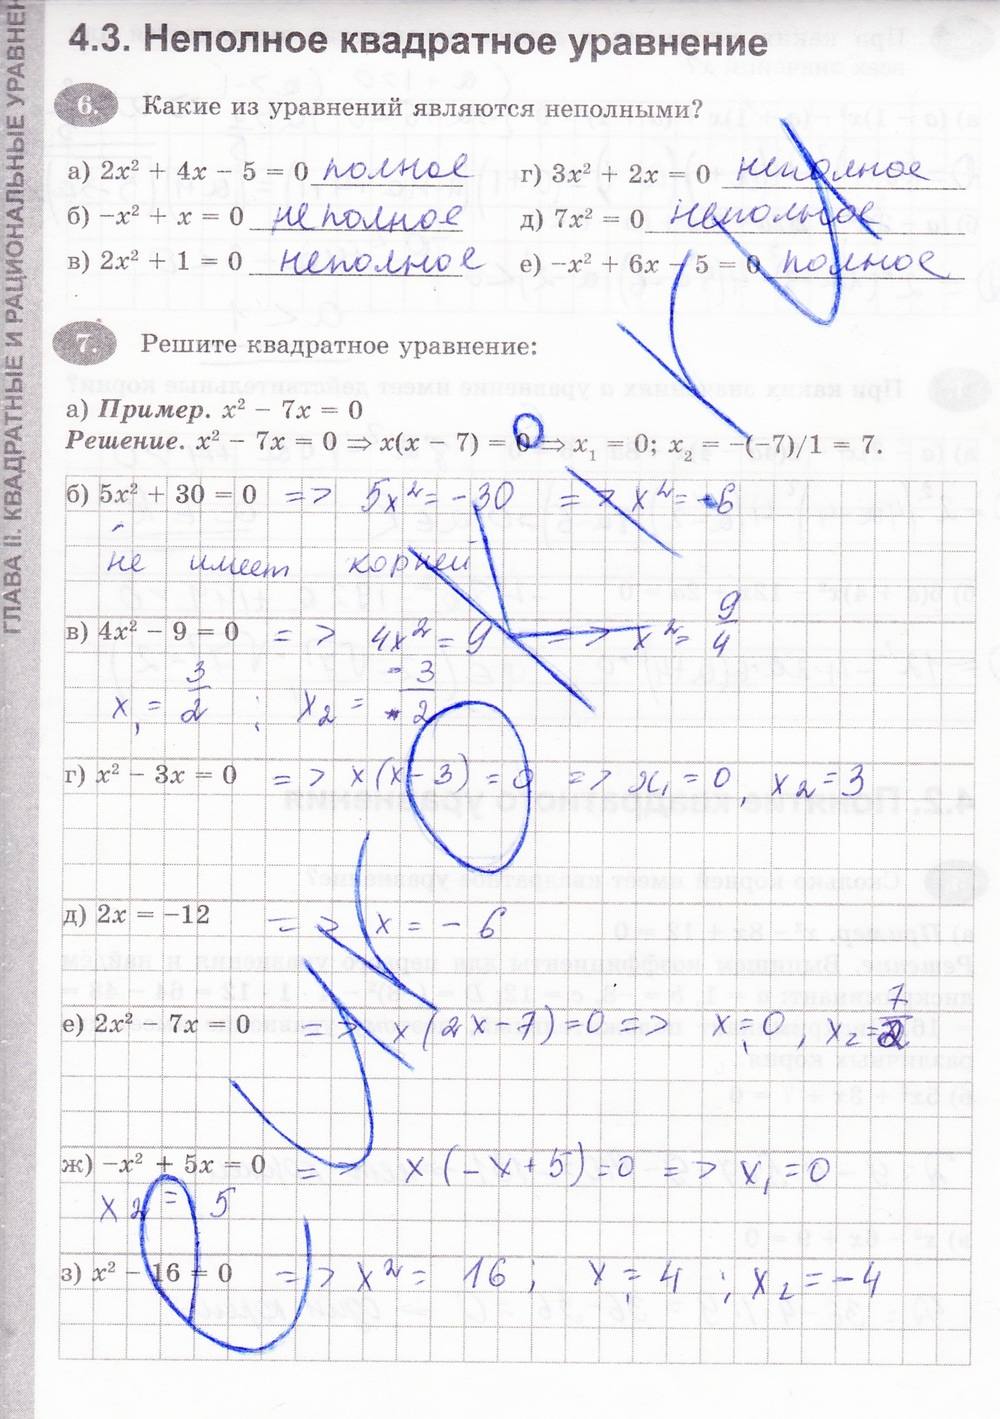 ГЛАВА II. КВАДРАТНЫЕ И РАЦИОНАЛЬНЫЕ УРАВНЕН
4.3. Неполное квадратное уравнение
6. Какие из уравнений являются неполными?
а) 2x² + 4x − 5 = 0 полное
б) −x² + x = 0 неполное
в) 2x² + 1 = 0 неполное
г) 3x² + 2x = 0 неполное
д) 7x² = 0 неполное
е) −x² + 6x − 5 = 0 полное
7. Решите квадратное уравнение:
а) Пример. x² − 7x = 0
Решение. x² − 7x = 0 ⇒ x(x − 7) = 0 ⇒ x₁ = 0; x₂ = −(−7)/1 = 7.
б) 5x² + 30 = 0 => 5x² = −30 => x² = −6
не имеет корней
в) 4x² − 9 = 0 => 4x² = 9 => x² = 9/4
x₁ = 3/2 ; x₂ = −3/2
г) x² − 3x = 0 => x(x − 3) = 0 => x₁ = 0, x₂ = 3
д) 2x = −12 => x = −6
е) 2x² − 7x = 0 => x(2x − 7) = 0 => x₁ = 0, x₂ = 7/2
ж) −x² + 5x = 0 => x(−x + 5) = 0 => x₁ = 0
x₂ = 5
з) x² − 16 = 0 => x² = 16; x₁ = 4; x₂ = −4